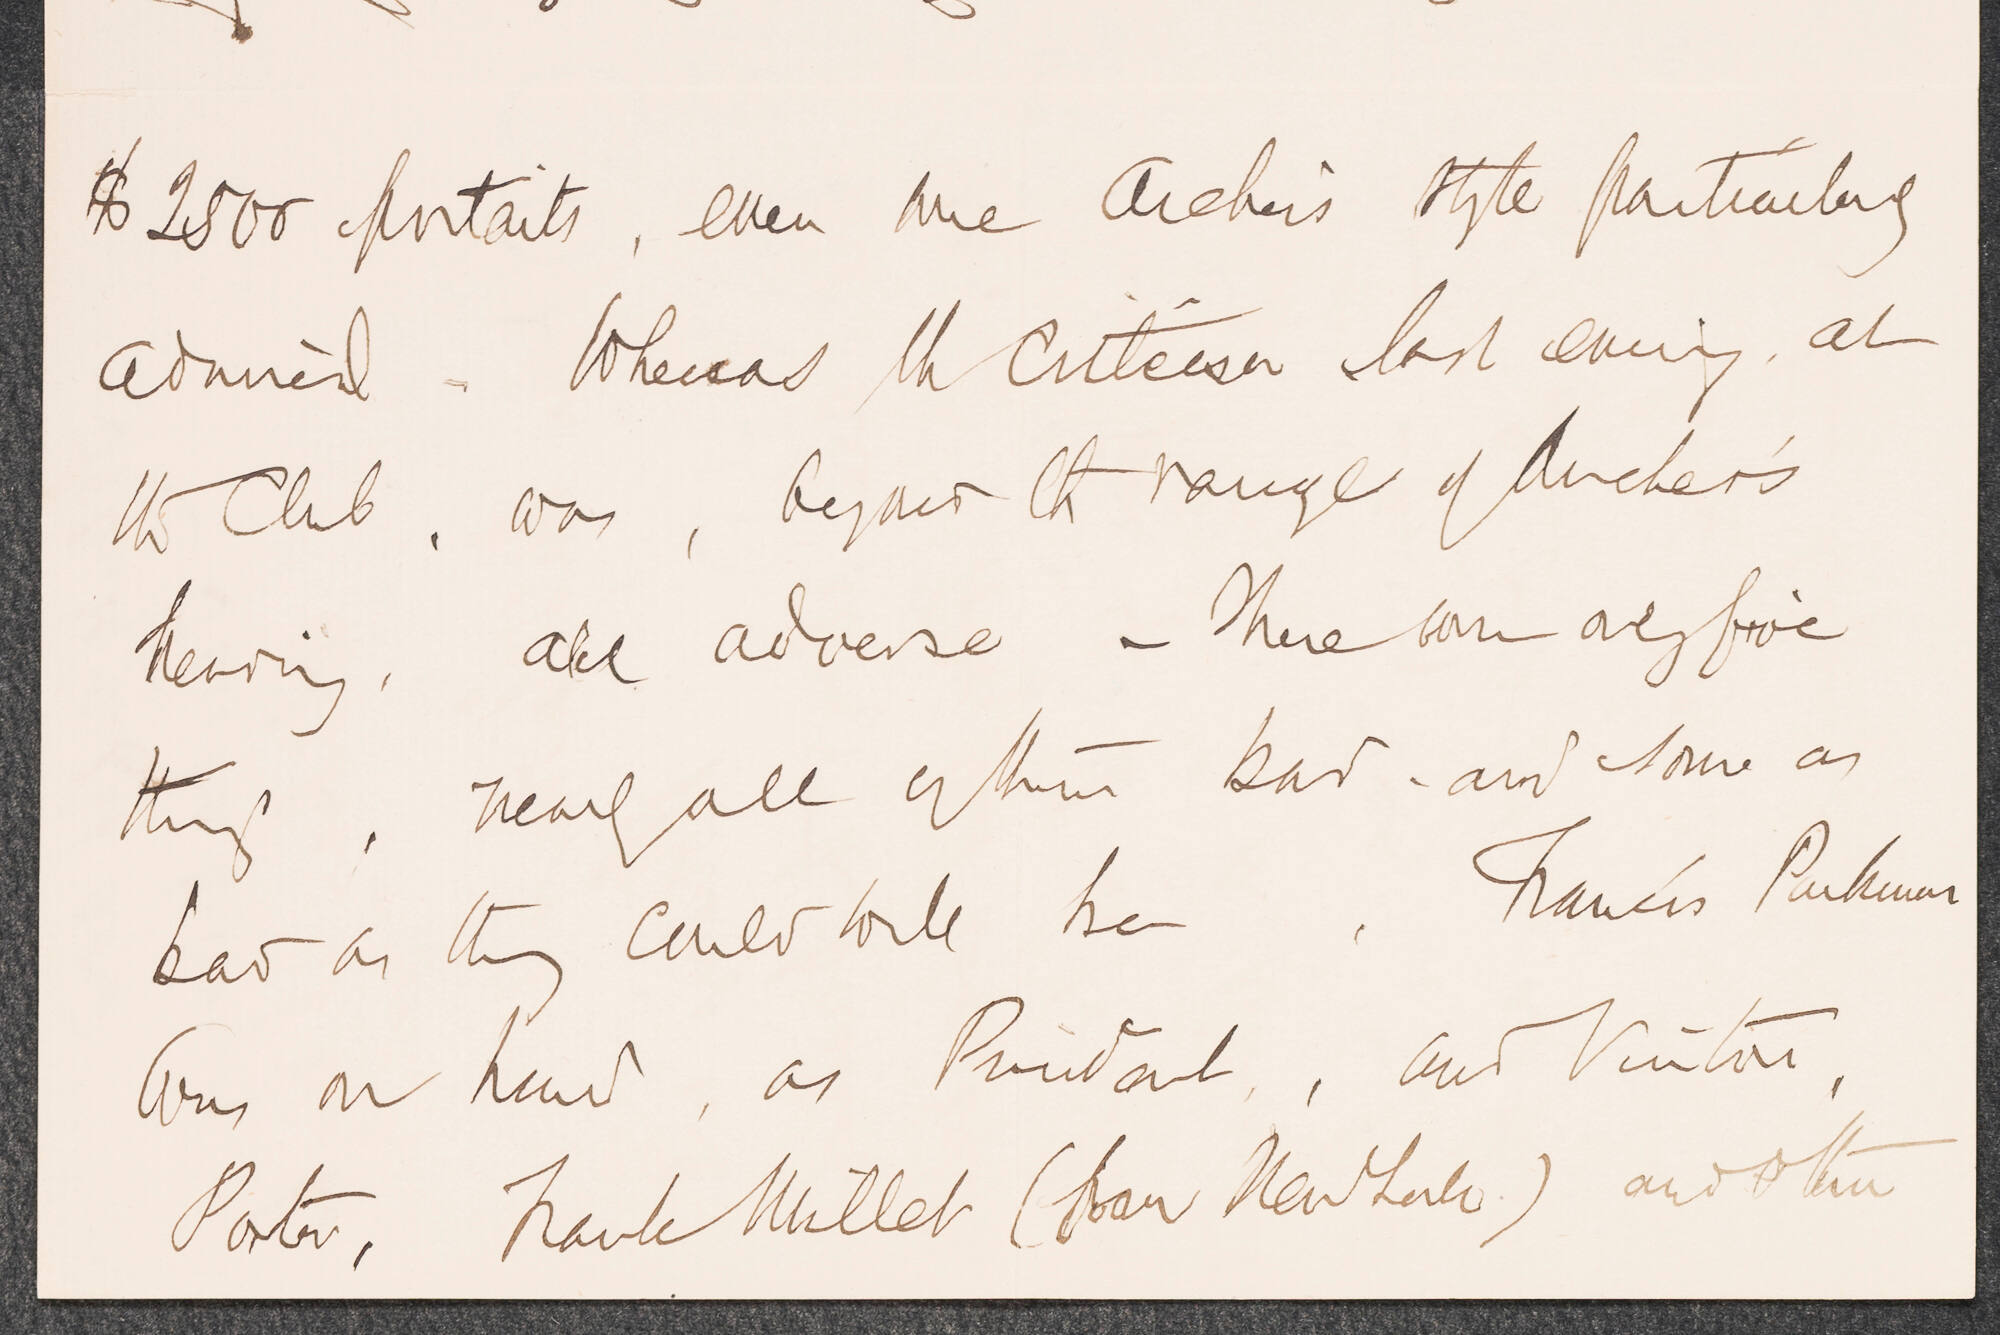 $2500 portraits, even one Archer's style particularly
admired - Whereas the criticism last evening, at
the Club, was, beyond the range of Archer's
hearing, all adverse - There were only five
things, nearly all of them bad - and some as
bad as they could well be, Francis Parkman
was on hand, as President, and Vinton,
Porter, Frank Millet (from New York) and others